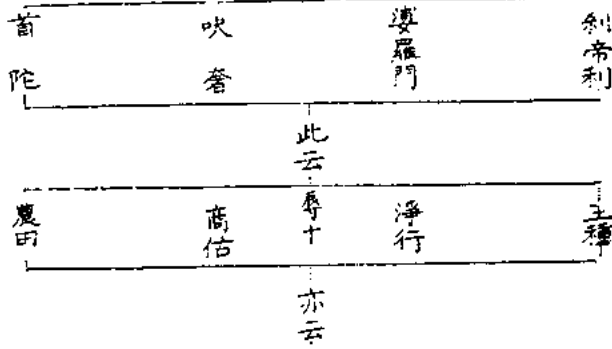 刹帝利
婆羅門
吠奢
首陀
此云
王種
淨行
商估
農田
亦云